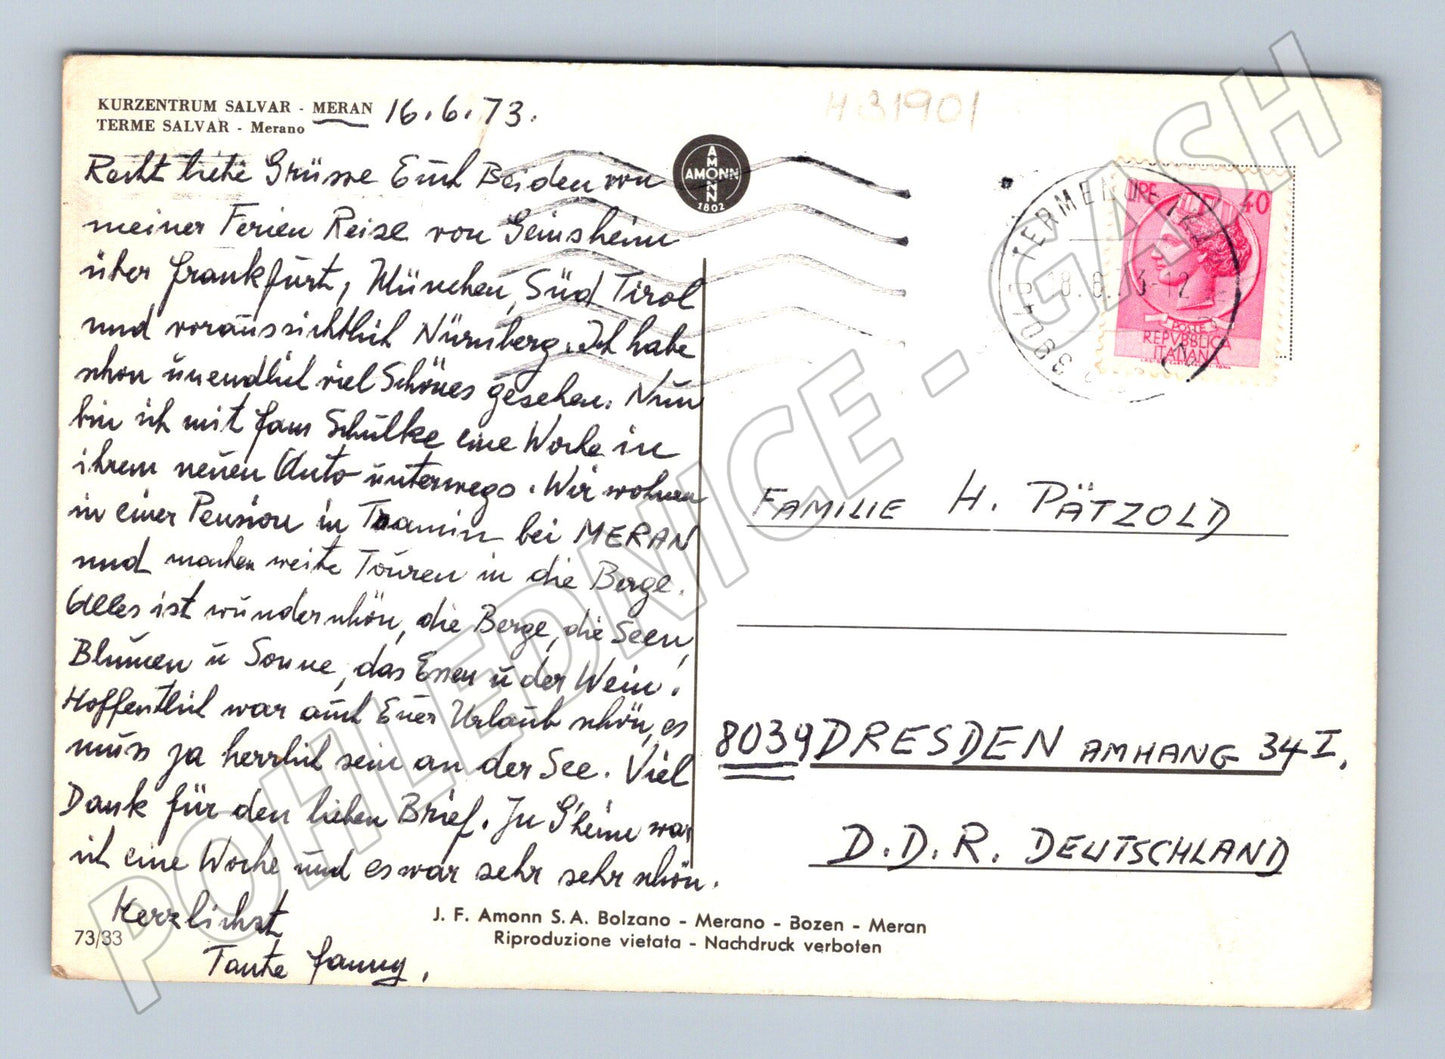 KURZENTRUM SALVAR - MERAN 16.6.73.
TERME SALVAR - Merano
H31901
Recht liebe Grüsse Euch Beiden von
meiner Ferien Reise von Geinsheim
über Frankfurt, München, Süd Tirol
und voraussichtlich Nürnberg. Ich habe
schon unendlich viel Schönes gesehen. Nun
bin ich mit Fam Schulke eine Woche in
ihrem neuen Auto unterwegs. Wir wohnen
in einer Pension in bei MERAN
und machen weite Touren in die Berge.
Alles ist wunderschön, die Berge, die Seen,
Blumen u Sonne, das Essen u der Wein.
Hoffentlich war auch Euer Urlaub schön, es
muss ja herrlich sein an der See. Viel
Dank für den lieben Brief. In G'heim war
ich eine Woche und es war sehr sehr schön.
Herzlichst
Tante Fanny.
73/33
AMONN
AMONN
1802
J. F. Amonn S.A. Bolzano - Merano - Bozen - Meran
Riproduzione vietata - Nachdruck verboten
LIRE 40
POSTE
REPVBBLICA
ITALIANA
FAMILIE H. PÄTZOLD
8039 DRESDEN AMHANG 34 I.
D.D.R. DEUTSCHLAND
POHLEDNICE - GASH